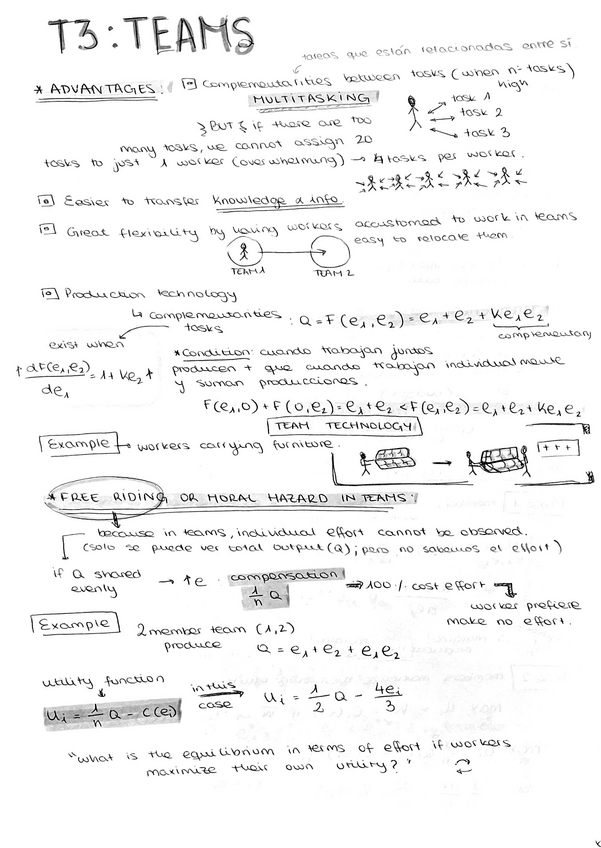 T3: TEAMS
tareas que están relacionadas entre sí
* ADVANTAGES: Complementarities between tasks (when nº tasks) high
MULTITASKING
task 1
task 2
task 3
BUT if there are too
many tasks, we cannot assign 20
tasks to just 1 worker (overwhelming) → 4 tasks per worker.
Easier to transfer knowledge & info.
Great flexibility by having workers accustomed to work in teams
easy to relocate them.
TEAM 1 TEAM 2
Production technology
↳ complementarities tasks : Q = F(e₁,e₂) = e₁ + e₂ + Ke₁e₂
complementary
exist when
↑ dF(e₁,e₂)/de₁ = 1 + Ke₂ ↑
* Condition: cuando trabajan juntos
producen + que cuando trabajan individualmente
y suman producciones.
F(e₁,0) + F(0,e₂) = e₁ + e₂ < F(e₁,e₂) = e₁ + e₂ + Ke₁e₂
TEAM TECHNOLOGY
Example → workers carrying furniture.
+ + +
* FREE RIDING OR MORAL HAZARD IN TEAMS:
because in teams, individual effort cannot be observed.
(solo se puede ver total output (Q); pero no sabemos el effort)
if Q shared evenly → ↑e · compensation 1/n Q ⇒ 100% cost effort
worker prefiere
make no effort.
Example 2 member team (1,2)
produce Q = e₁ + e₂ + e₁e₂
utility function
Uᵢ = 1/n Q - C(eᵢ) in this case → Uᵢ = 1/2 Q - 4eᵢ/3
"what is the equilibrium in terms of effort if workers
maximize their own utility?"